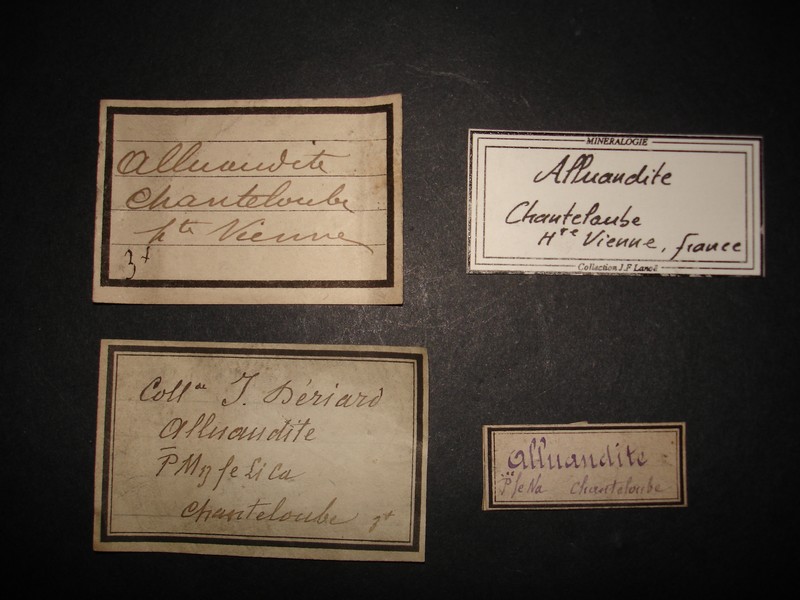 Alluandite
Chanteloube
hte Vienne
3f
MINERALOGIE
Alluandite
Chanteloube
Hte Vienne, france
Collection J.F Lanoë
Coll on J. Bériard
Alluandite
P Mn fe Li Ca
Chanteloube
Alluandite
P fe Na Chanteloube